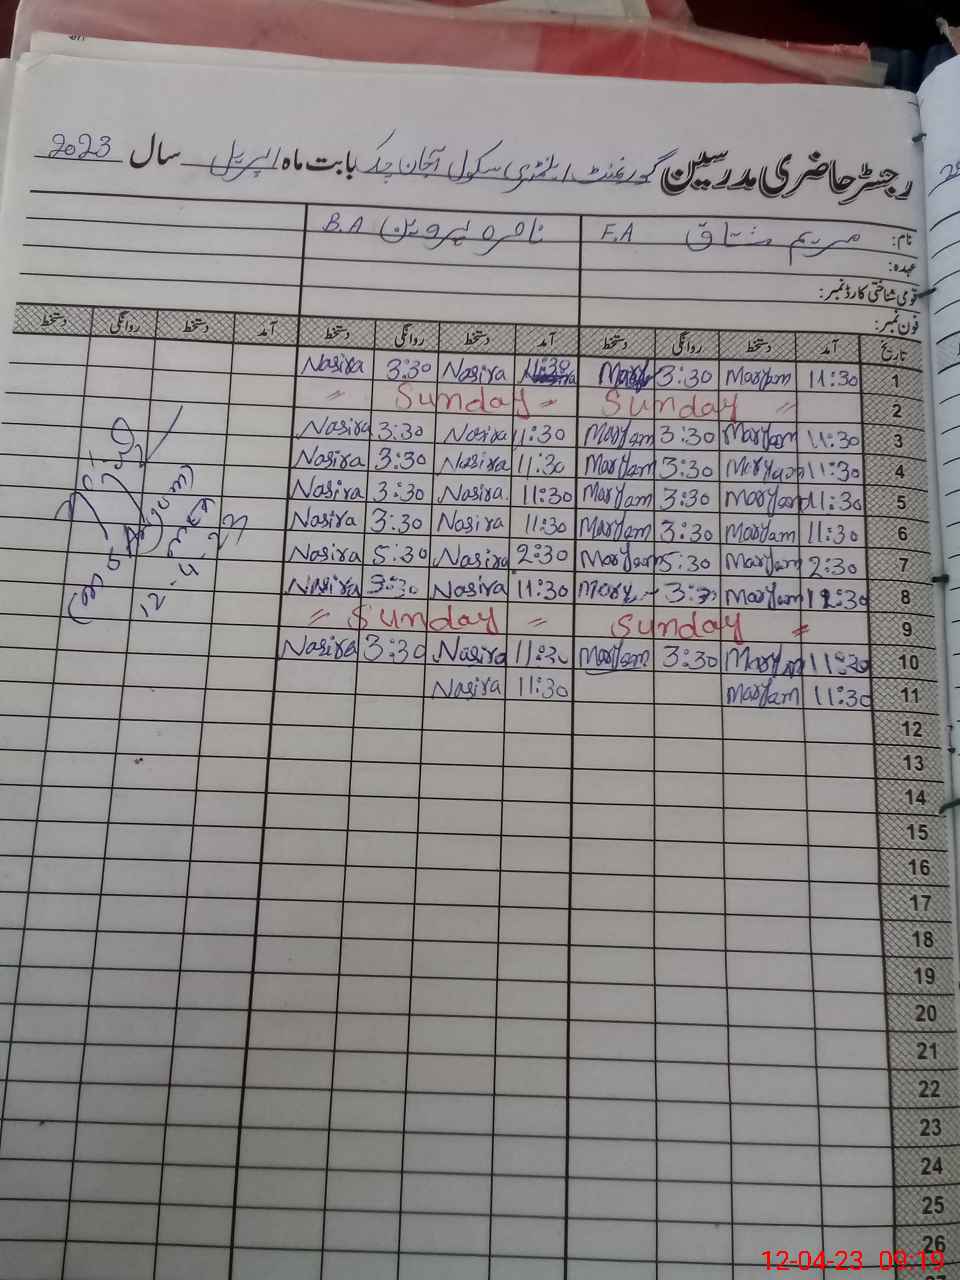 رجسٹر حاضری مدرسین گورنمنٹ ایلیمنٹری سکول آنجان چک بابت ماہ اپریل سال 2023
نام: مریم مشتاق F.A ناصرہ پروین B.A
عہدہ:
قومی شناختی کارڈ نمبر:
فون نمبر:
تاریخ آمد دستخط روانگی دستخط آمد دستخط روانگی دستخط آمد دستخط روانگی دستخط
1 11:30 Maryam 3:30 11:30 Nasira 3:30 Nasira
2 Sunday Sunday
3 11:30 Maryam 3:30 Maryam 11:30 Nasira 3:30 Nasira
4 11:30 Maryam 3:30 Maryam 11:30 Nasira 3:30 Nasira
5 11:30 Maryam 3:30 Maryam 11:30 Nasira 3:30 Nasira
6 11:30 Maryam 3:30 Maryam 11:30 Nasira 3:30 Nasira
7 2:30 Maryam 5:30 Maryam 2:30 Nasira 5:30 Nasira
8 Maryam 11:30 Nasira 3:30 Nasira
9 Sunday Sunday
10 11:30 Maryam 3:30 Maryam 11:30 Nasira 3:30 Nasira
11 11:30 Maryam 11:30 Nasira
12
13
14
15
16
17
18
19
20
21
22
23
24
25
26
12-04-23 09:19